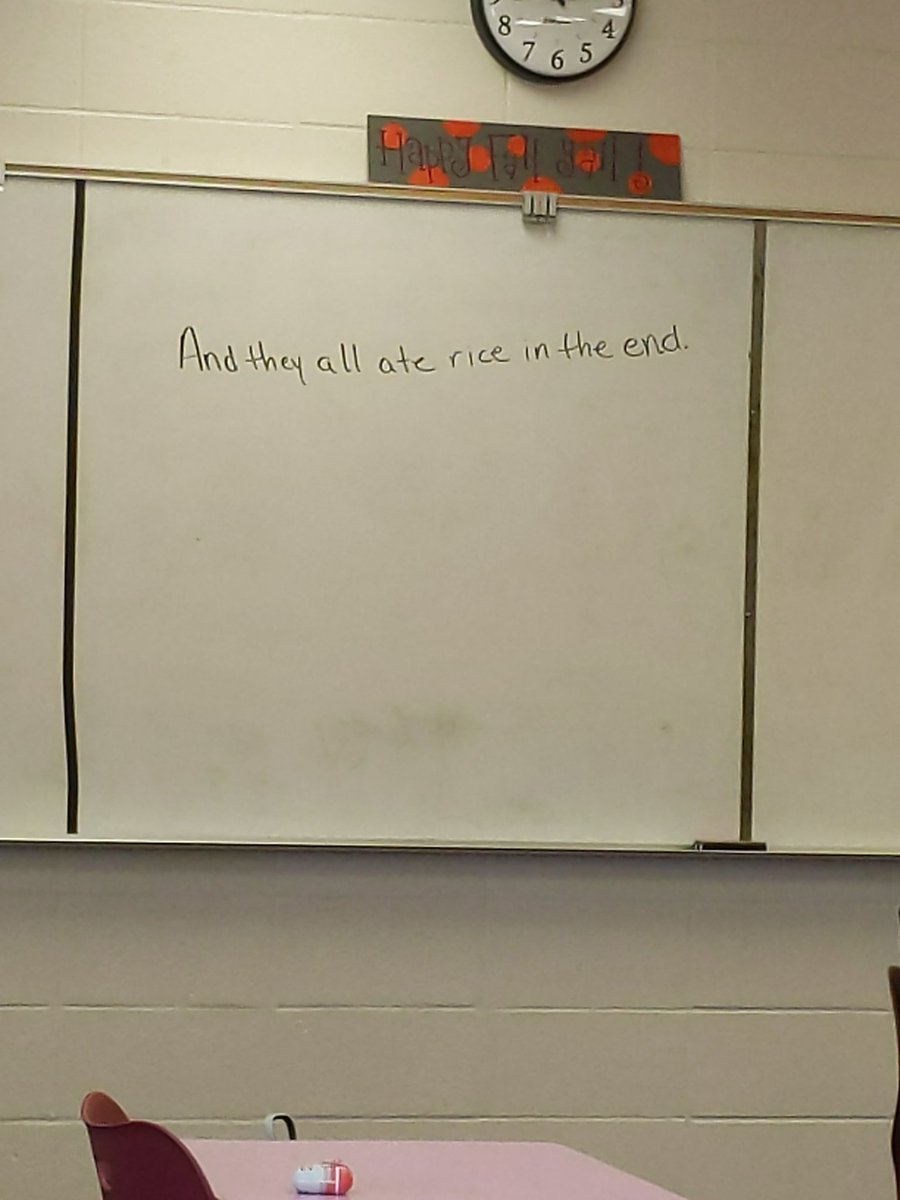 8 7 6 5 4
Happy Fall Yall!
And they all ate rice in the end.